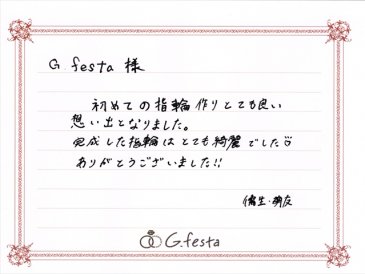 G.festa 様
初めての指輪作りとても良い
想い出となりました。
完成した指輪はとても綺麗でした
ありがとうございました!!
G.festa